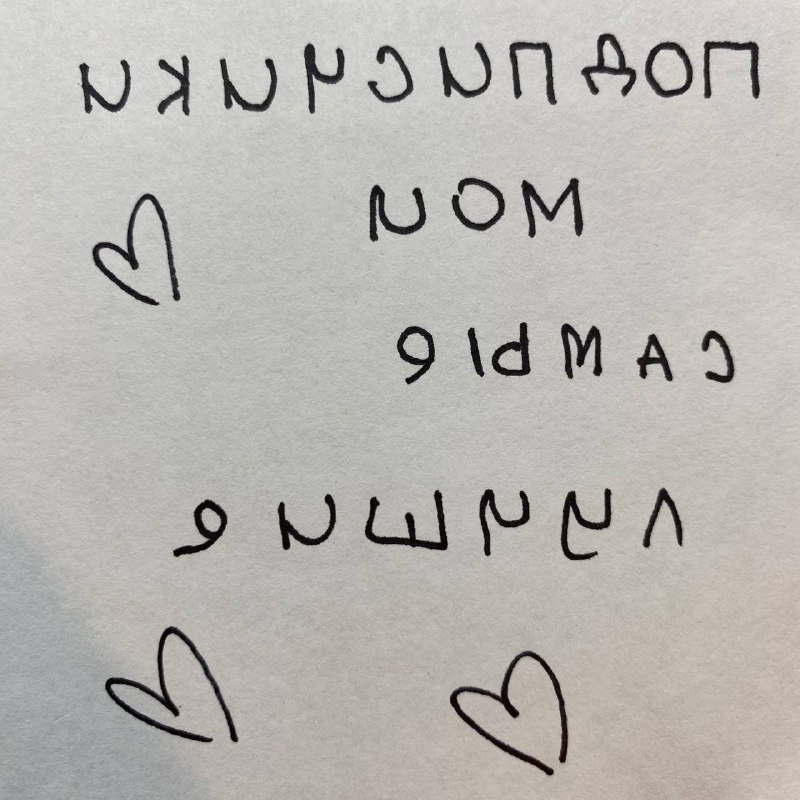 подписчики
мои
самые
лучшие